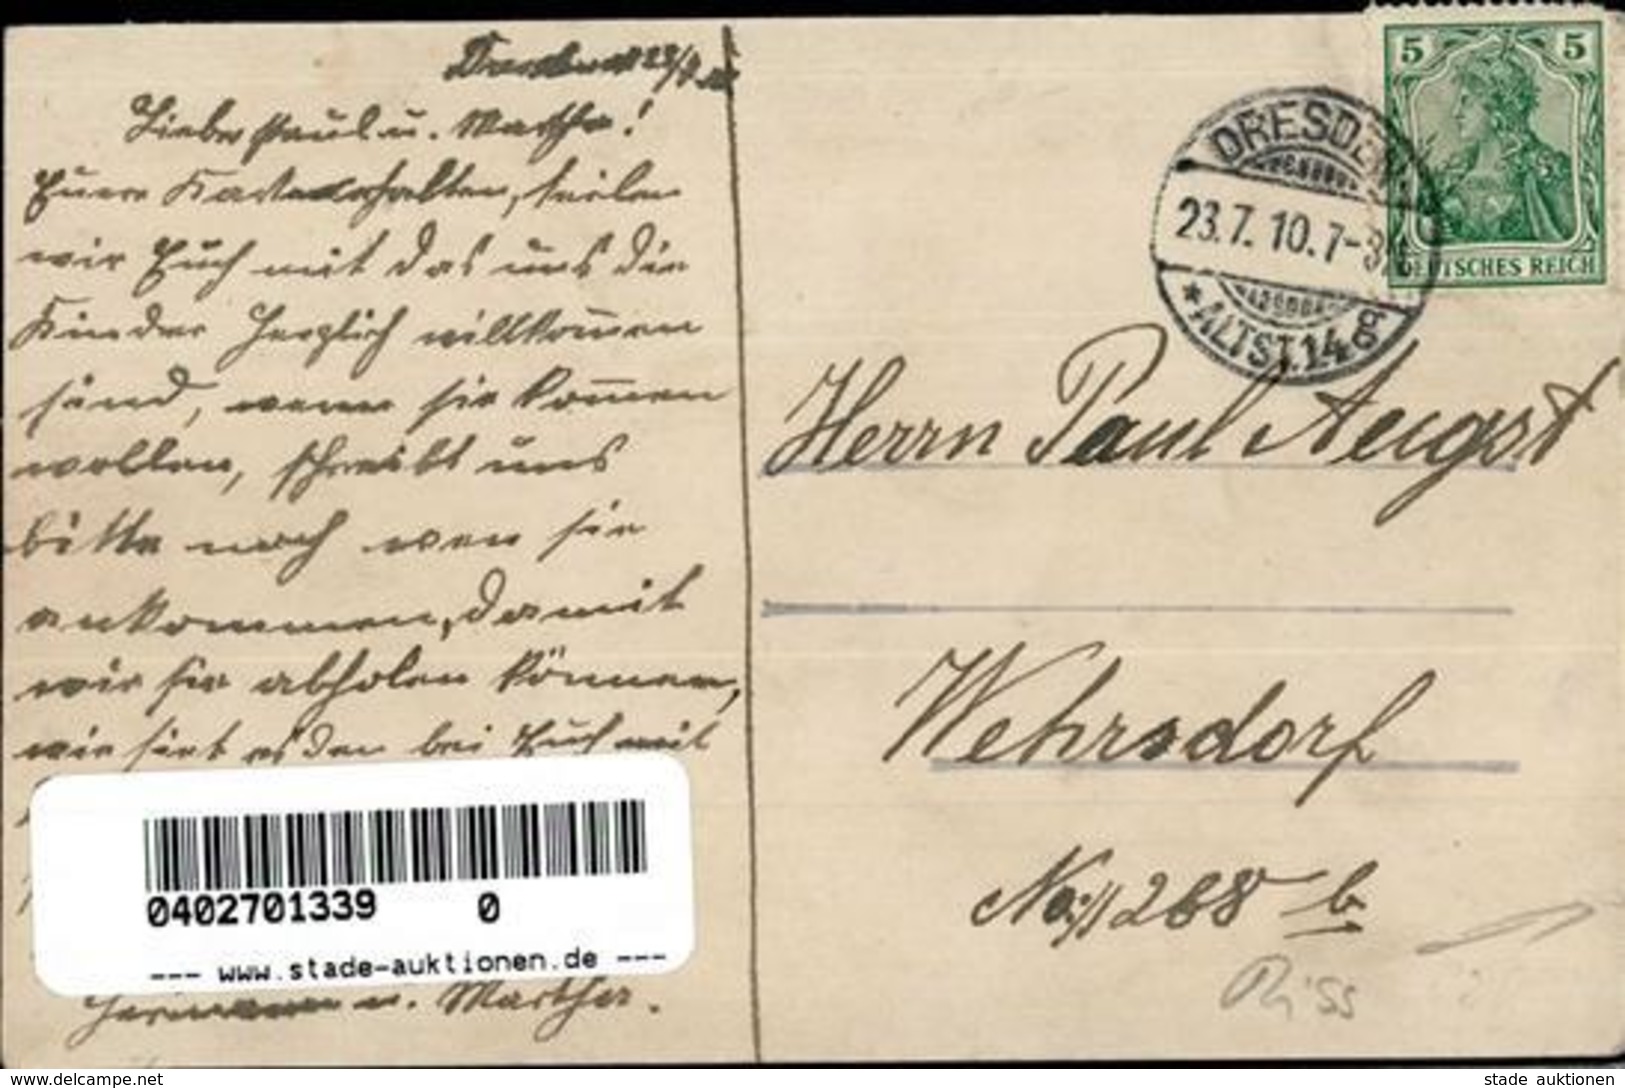 Dresden d 23/7.
Lieber Paul u. Marthe!
Euere Karte erhalten, teilen
wir Euch mit das uns die
Kinder Herzlich willkom̄en
sind, wenn sie kom̄en
wollen, schreibt uns
bitte noch wen sie
ankommen, damit
wir sie abholen können,
wie sieht es den bei Euch mit
u. Marthe.
5 5
DEUTSCHES REICH
DRESDEN
23.7.10.7-8
* ALTST. 14
Herrn Paul Augst
Wehrsdorf
No 268 b
Riss
0402701339 0
--- www.stade-auktionen.de ---
delcampe.net
stade auktionen